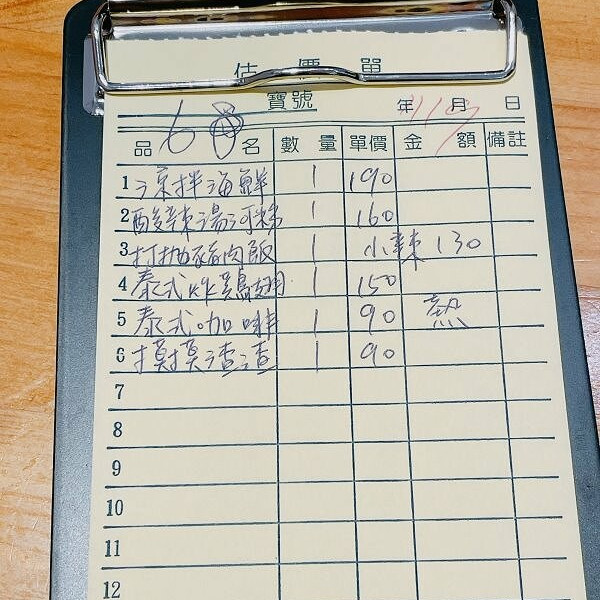 估價單
寶號 年 月 日
品 6 名 數量 單價 金額 備註
1 涼拌海鮮 1 190
2 酸辣湯河粉 1 160
3 打抛豬肉飯 1 小辣 130
4 泰式炸雞翅 1 150
5 泰式咖啡 1 90 熱
6 摸摸渣渣 1 90
7
8
9
10
11
12